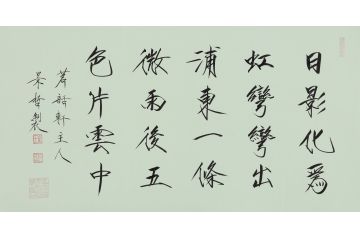 日影化為
虹彎彎出
浦東一條
微雨後五
色片雲中
蕭語軒主人
吳哲製